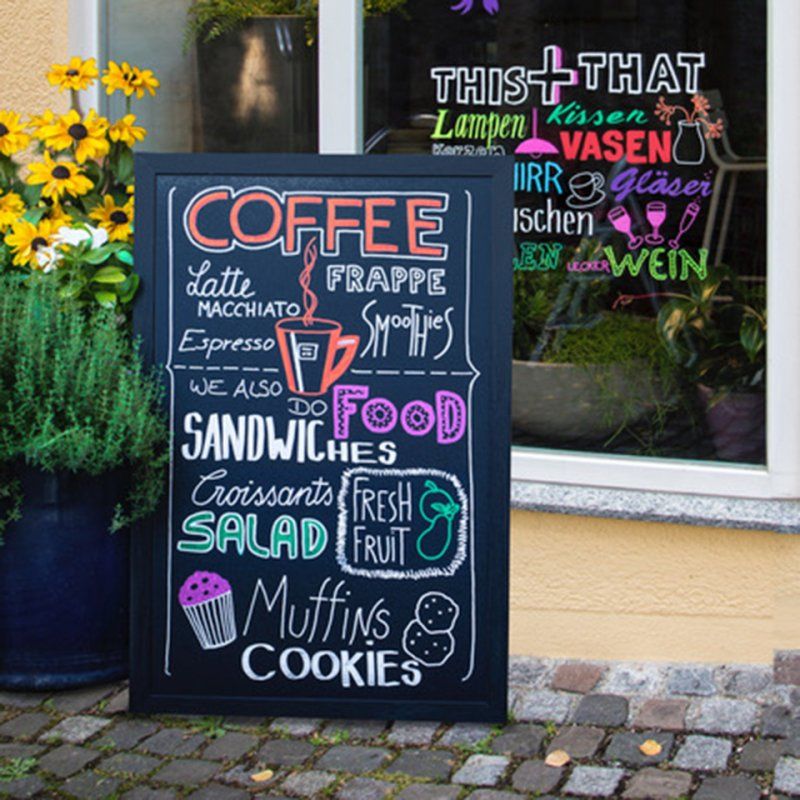 COFFEE
Latte MACCHIATO
FRAPPE
Espresso
SMOOTHIES
WE ALSO DO FOOD
SANDWICHES
Croissants
SALAD
FRESH FRUIT
Muffins
COOKIES
THIS+THAT
Lampen Kissen
Kerzen VASEN
Gläser
LECKER WEIN